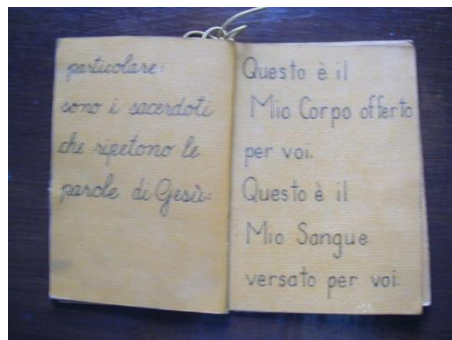 particolare:
sono i sacerdoti
che ripetono le
parole di Gesù:
Questo è il
Mio Corpo offerto
per voi.
Questo è il
Mio Sangue
versato per voi.